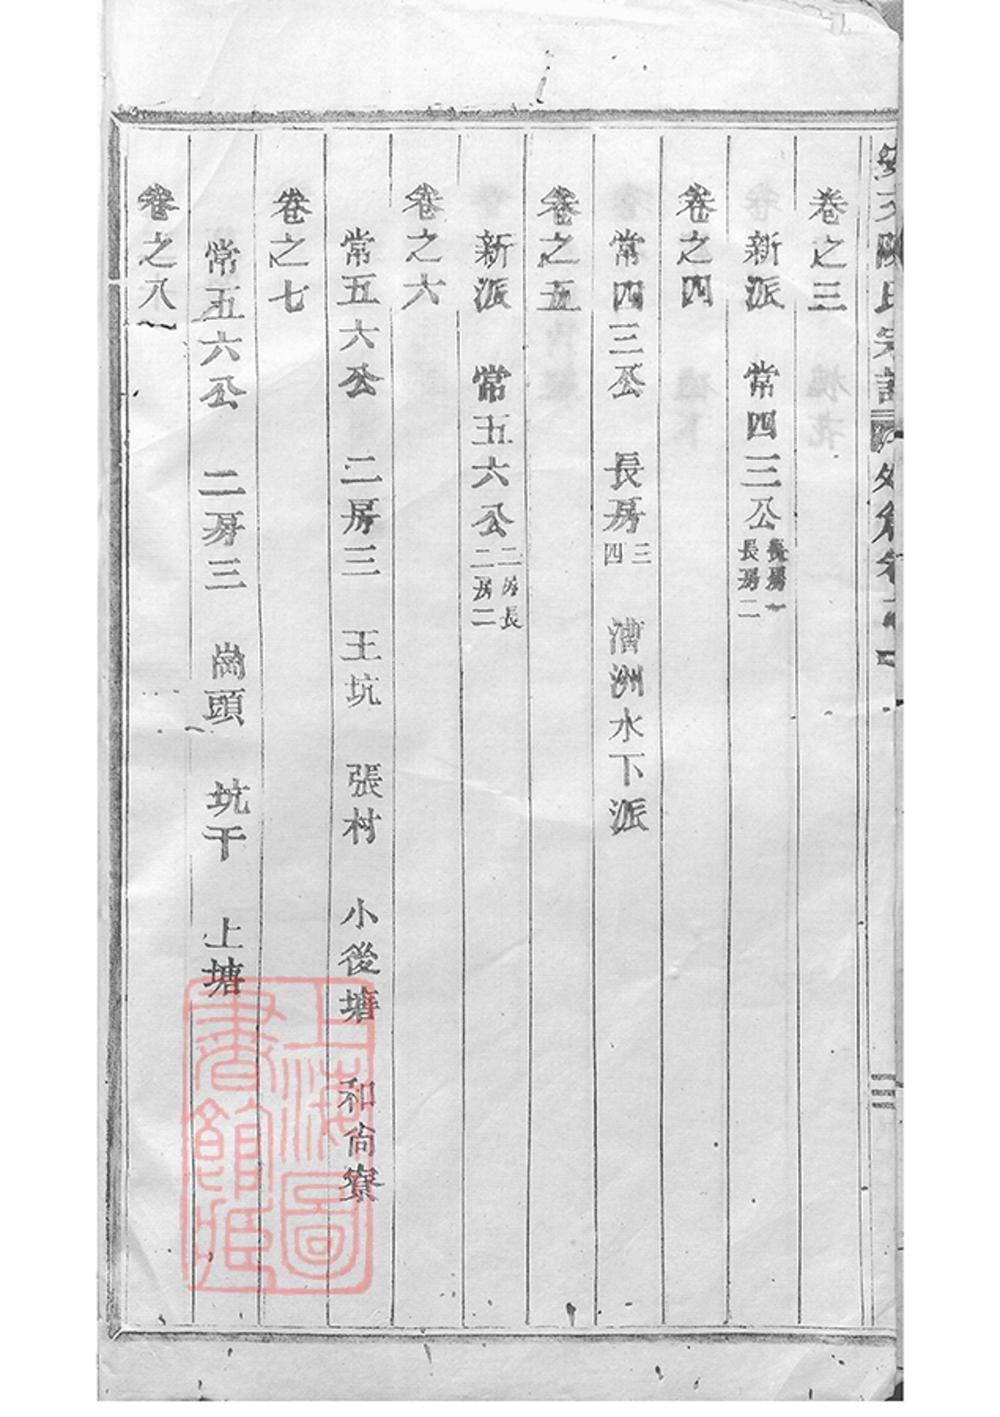 卷之三
新派　常四三公 長房一 長房二
卷之四
常四三公　長房 三 四　漕洲水下派
卷之五
新派　常五六公 二房長 二房二
卷之六
常五六公　二房三　王坑　張村　小後塘　和尙寮
卷之七
常五六公　二房三　崗頭　坑干　上塘
卷之八
上海圖書館藏